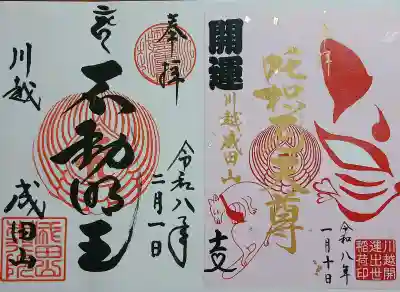 奉拝
不動明王
川越
成田山
令和八年
二月一日
奉拝
開運
川越成田山
吒枳尼天尊
令和八年
一月十日
川越開
運出世
稲荷印